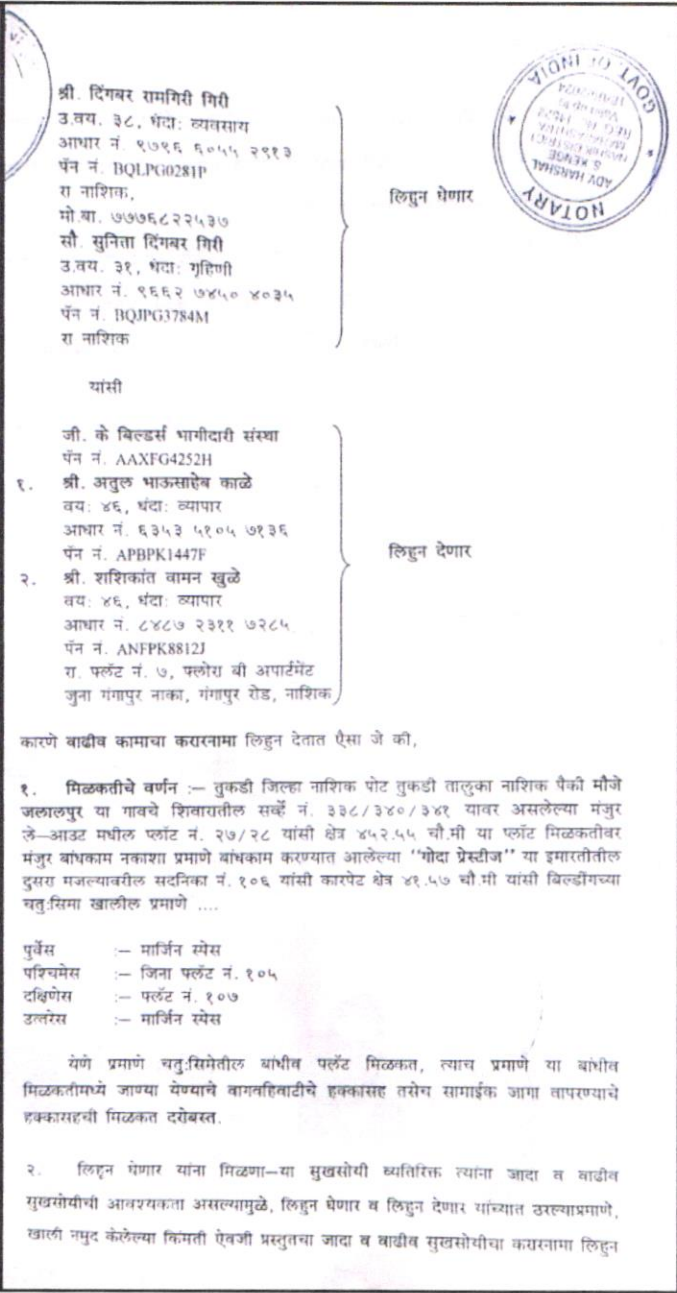 श्री. दिंगबर रामगिरी गिरी
उ.वय. ३८, धंदा: व्यवसाय
आधार नं. ९७९६ ६०५५ २९१३
पॅन नं. BQLPG0281P
रा नाशिक,
मो.बा. ७७७६८२२५३७
सौ. सुनिता दिंगबर गिरी
उ.वय. ३१, धंदा: गृहिणी
आधार नं. ९६६२ ७४५० ४०३५
पॅन नं. BQJPG3784M
रा नाशिक
लिहुन घेणार
NOTARY
GOVT. OF INDIA
ADV HARSHAL
S KENGE
NASHIK DISTRICT
MAHARASHTRA
यांसी
जी. के बिल्डर्स भागीदारी संस्था
पॅन नं. AAXFG4252H
१. श्री. अतुल भाऊसाहेब काळे
वय: ४६, धंदा: व्यापार
आधार नं. ६३५३ ५१०५ ७१३६
पॅन नं. APBPK1447F
२. श्री. शशिकांत वामन खुळे
वय: ४६, धंदा: व्यापार
आधार नं. ८४८७ २३११ ७२८५
पॅन नं. ANFPK8812J
रा. फ्लॅट नं. ७, फ्लोरा बी अपार्टमेंट
जुना गंगापुर नाका, गंगापुर रोड, नाशिक
लिहुन देणार
कारणे वाढीव कामाचा करारनामा लिहुन देतात ऐसा जे की,
१. मिळकतीचे वर्णन :— तुकडी जिल्हा नाशिक पोट तुकडी तालुका नाशिक पैकी मौजे
जलालपुर या गावचे शिवारातील सर्व्हे नं. ३३८/३४०/३४१ यावर असलेल्या मंजुर
ले—आउट मधील प्लॉट नं. २७/२८ यांसी क्षेत्र ४५२.५५ चौ.मी या प्लॉट मिळकतीवर
मंजुर बांधकाम नकाशा प्रमाणे बांधकाम करण्यात आलेल्या "गोदा प्रेस्टीज" या इमारतीतील
दुसरा मजल्यावरील सदनिका नं. १०६ यांसी कारपेट क्षेत्र ४१.५७ चौ.मी यांसी बिल्डींगच्या
चतु:सिमा खालील प्रमाणे ....
पुर्वेस :— मार्जिन स्पेस
पश्चिमेस :— जिना फ्लॅट नं. १०५
दक्षिणेस :— फ्लॅट नं. १०७
उत्तरेस :— मार्जिन स्पेस
येणे प्रमाणे चतु:सिमेतील बांधीव फ्लॅट मिळकत, त्याच प्रमाणे या बांधीव
मिळकतीमध्ये जाण्या येण्याचे वागवहिवाटीचे हक्कासह तसेच सामाईक जागा वापरण्याचे
हक्कासहची मिळकत दरोबस्त.
२. लिहुन घेणार यांना मिळणा—या सुखसोयी व्यतिरिक्त त्यांना जादा व वाढीव
सुखसोयीची आवश्यकता असल्यामुळे, लिहुन घेणार व लिहुन देणार यांच्यात ठरल्याप्रमाणे,
खाली नमुद केलेल्या किंमती ऐवजी प्रस्तुतचा जादा व वाढीव सुखसोयीचा करारनामा लिहुन